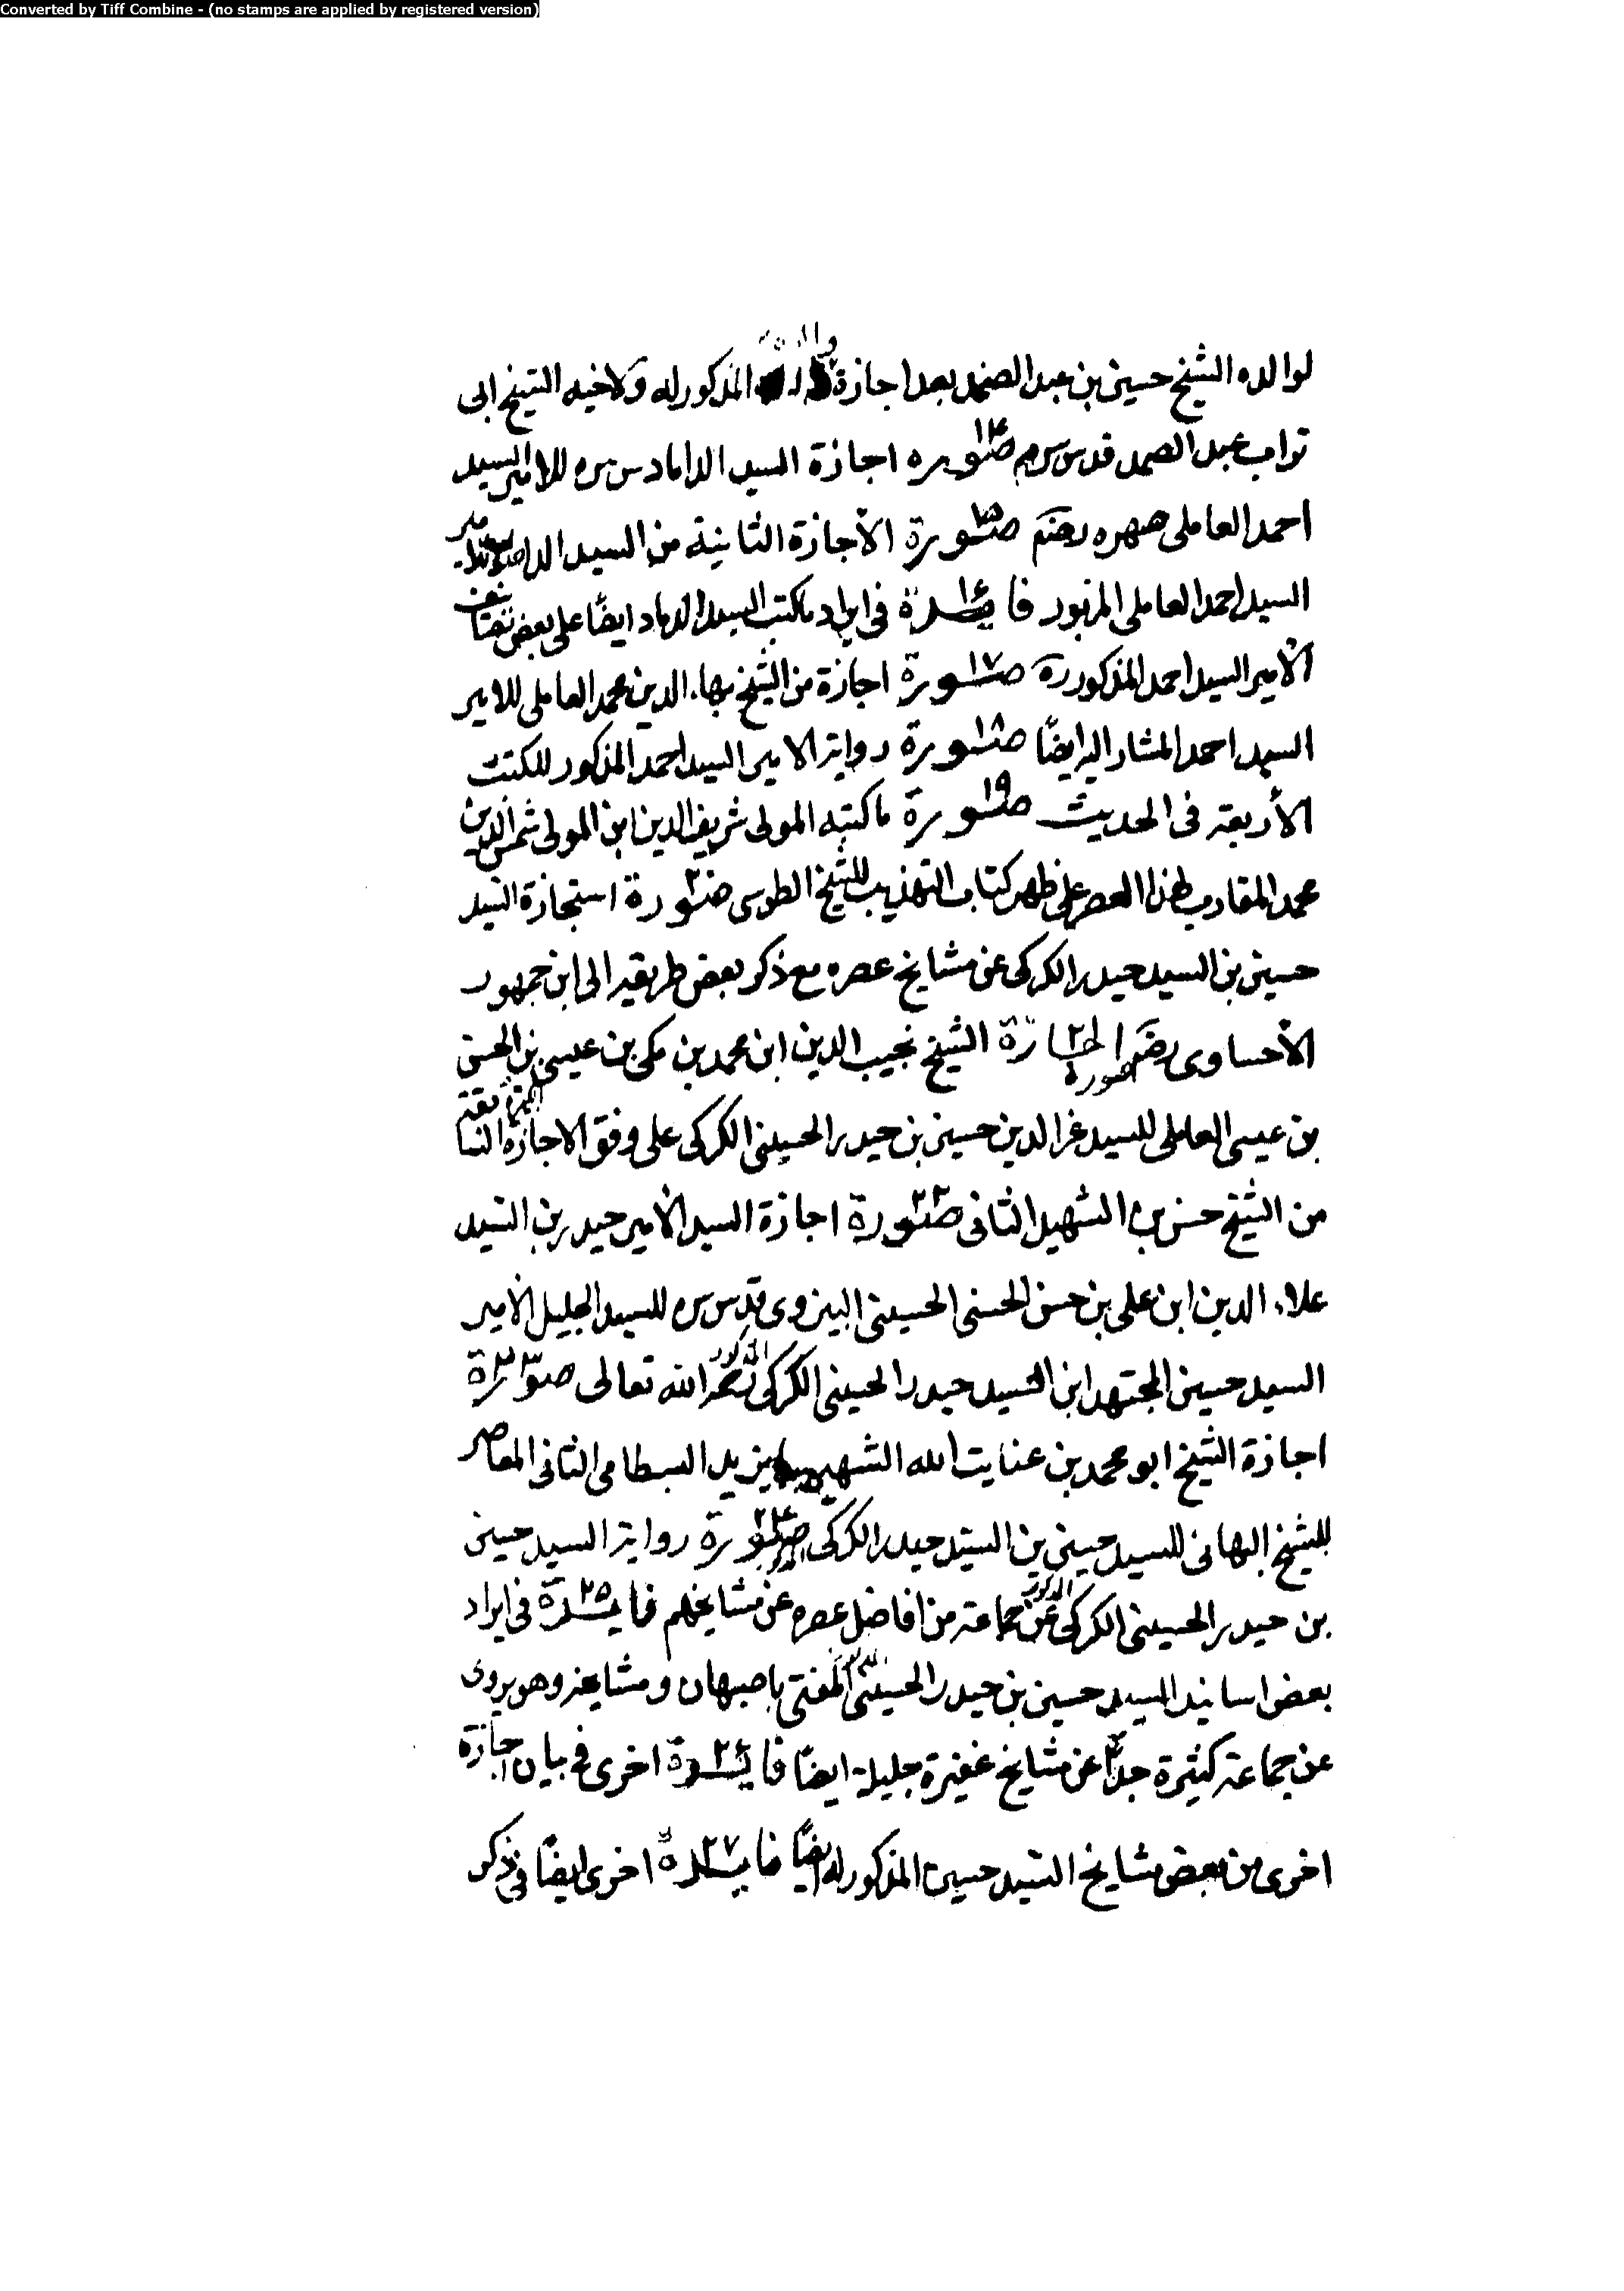 Converted by Tiff Combine - (no stamps are applied by registered version)
لوالده الشيخ حسين بن عبد الصمد بعد اجازة والده المذكور له ولاخيه الشيخ ابى
تراب عبد الصمد قدس سرهم صورة ١٤ اجازة السيد الداماد س سره للامير السيد
احمد العاملى صهره رضم صورة ١٥ الاجازة الثانية من السيد الداماد
السيد احمد العاملى المزبور فائدة ١٦ فى ايراد ما كتب السيد الداماد ايضًا على بعض
الامير السيد احمد المذكور ره صورة ١٧ اجازة من الشيخ بهاء الدين محمد العاملى للامير
السيد احمد المشار اليه ايضًا صورة ١٨ رواية الامير السيد احمد المذكور للكتب
الأربعة فى الحديث صورة ١٩ ما كتبه المولى شريف الدين ابن المولى شمس الدين
محمد المقارب لهذا العصر على ظهر كتاب التهذيب للشيخ الطوسى صورة ٢٠ استجازة السيد
حسين بن السيد حيدر الكركى عن مشايخ عصره مع ذكر بعض طريقه الى ابن جمهور
الأحساوى رضم صورة ٢١ اجازة الشيخ نجيب الدين ابن محمد بن مكى بن عيسى بن الحسن
بن عيسى العاملى للسيد عز الدين حسين بن حيدر الحسينى الكركى على وفق الاجازة
من الشيخ حسن بن الشهيد الثانى صورة ٢٢ اجازة السيد الأمير حيدر بن السيد
علاء الدين ابن على بن حسن الحسنى الحسينى البيزوى قدس سره للسيد الجليل الأمير
السيد حسين المجتهد ابن السيد حيدر الحسينى الكركى المذكور رحمه الله تعالى صورة ٢٣
اجازة الشيخ ابو محمد بن عنايت الله الشهير ببايزيد البسطامى الثانى المعاصر
للشيخ البهائى للسيد حسين بن السيد حيدر الكركى صورة ٢٤ رواية السيد حسين
بن حيدر الحسينى الكركى المذكور عن جماعة من افاضل عصره عن مشايخهم فائدة ٢٥ فى ايراد
بعض اسانيد السيد حسين بن حيدر الحسينى المفتى باصبهان ومشايخه وهو يروى
عن جماعة كثيرة جدًا عن مشايخ غفيرة جليلة ايضًا فائدة ٢٦ اخرى فى بيان اجازة
اخرى من بعض مشايخ السيد حسين المذكور له ايضًا فائدة ٢٧ اخرى ايضًا فى ذكر